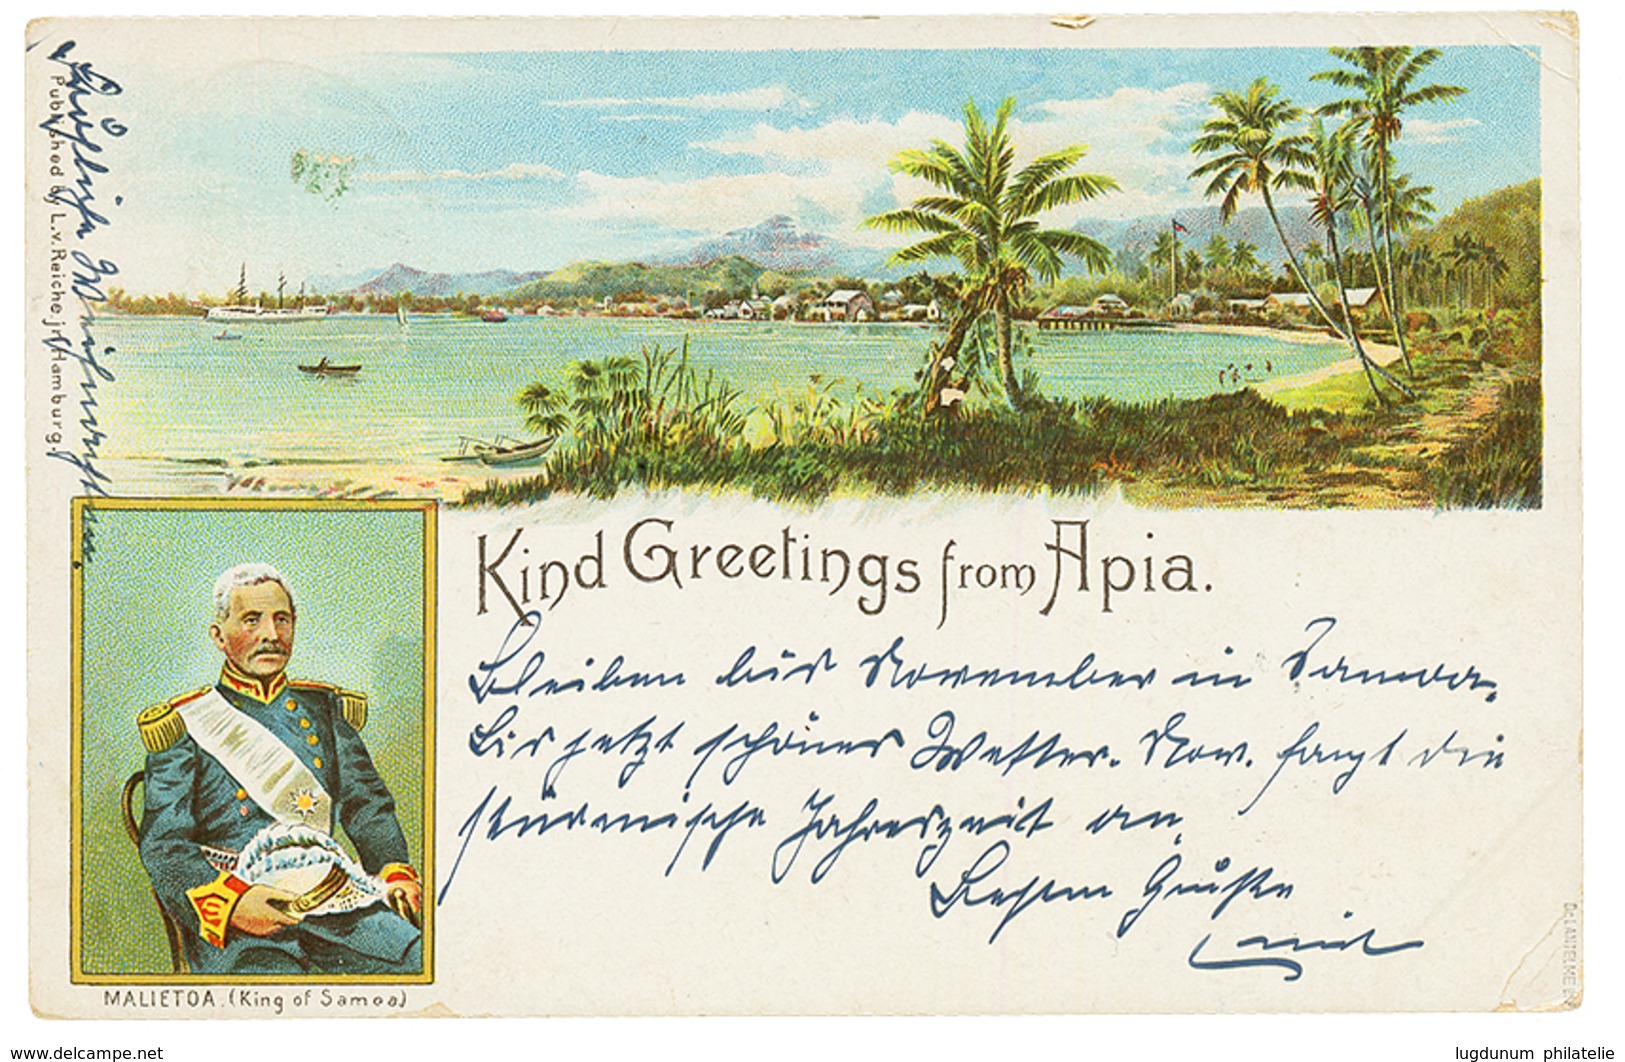 Fröhliche Weihnachten.
Published by L.v.Reiche jr. Hamburg.
Kind Greetings from Apia.
Bleiben bis November in Samoa,
bis jetzt schönes Wetter. Nov. fängt die
stürmische Jahreszeit an.
Besten Grüße
MALIETOA. (King of Samoa)
www.delcampe.net
lugdunum philatelie